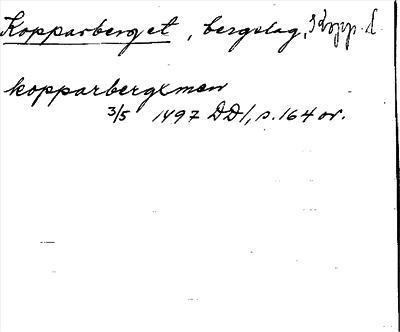 Kopparberget, bergslag, Kopp. l
kopparbergxmen
3/5 1497 DD1, s. 164 or.